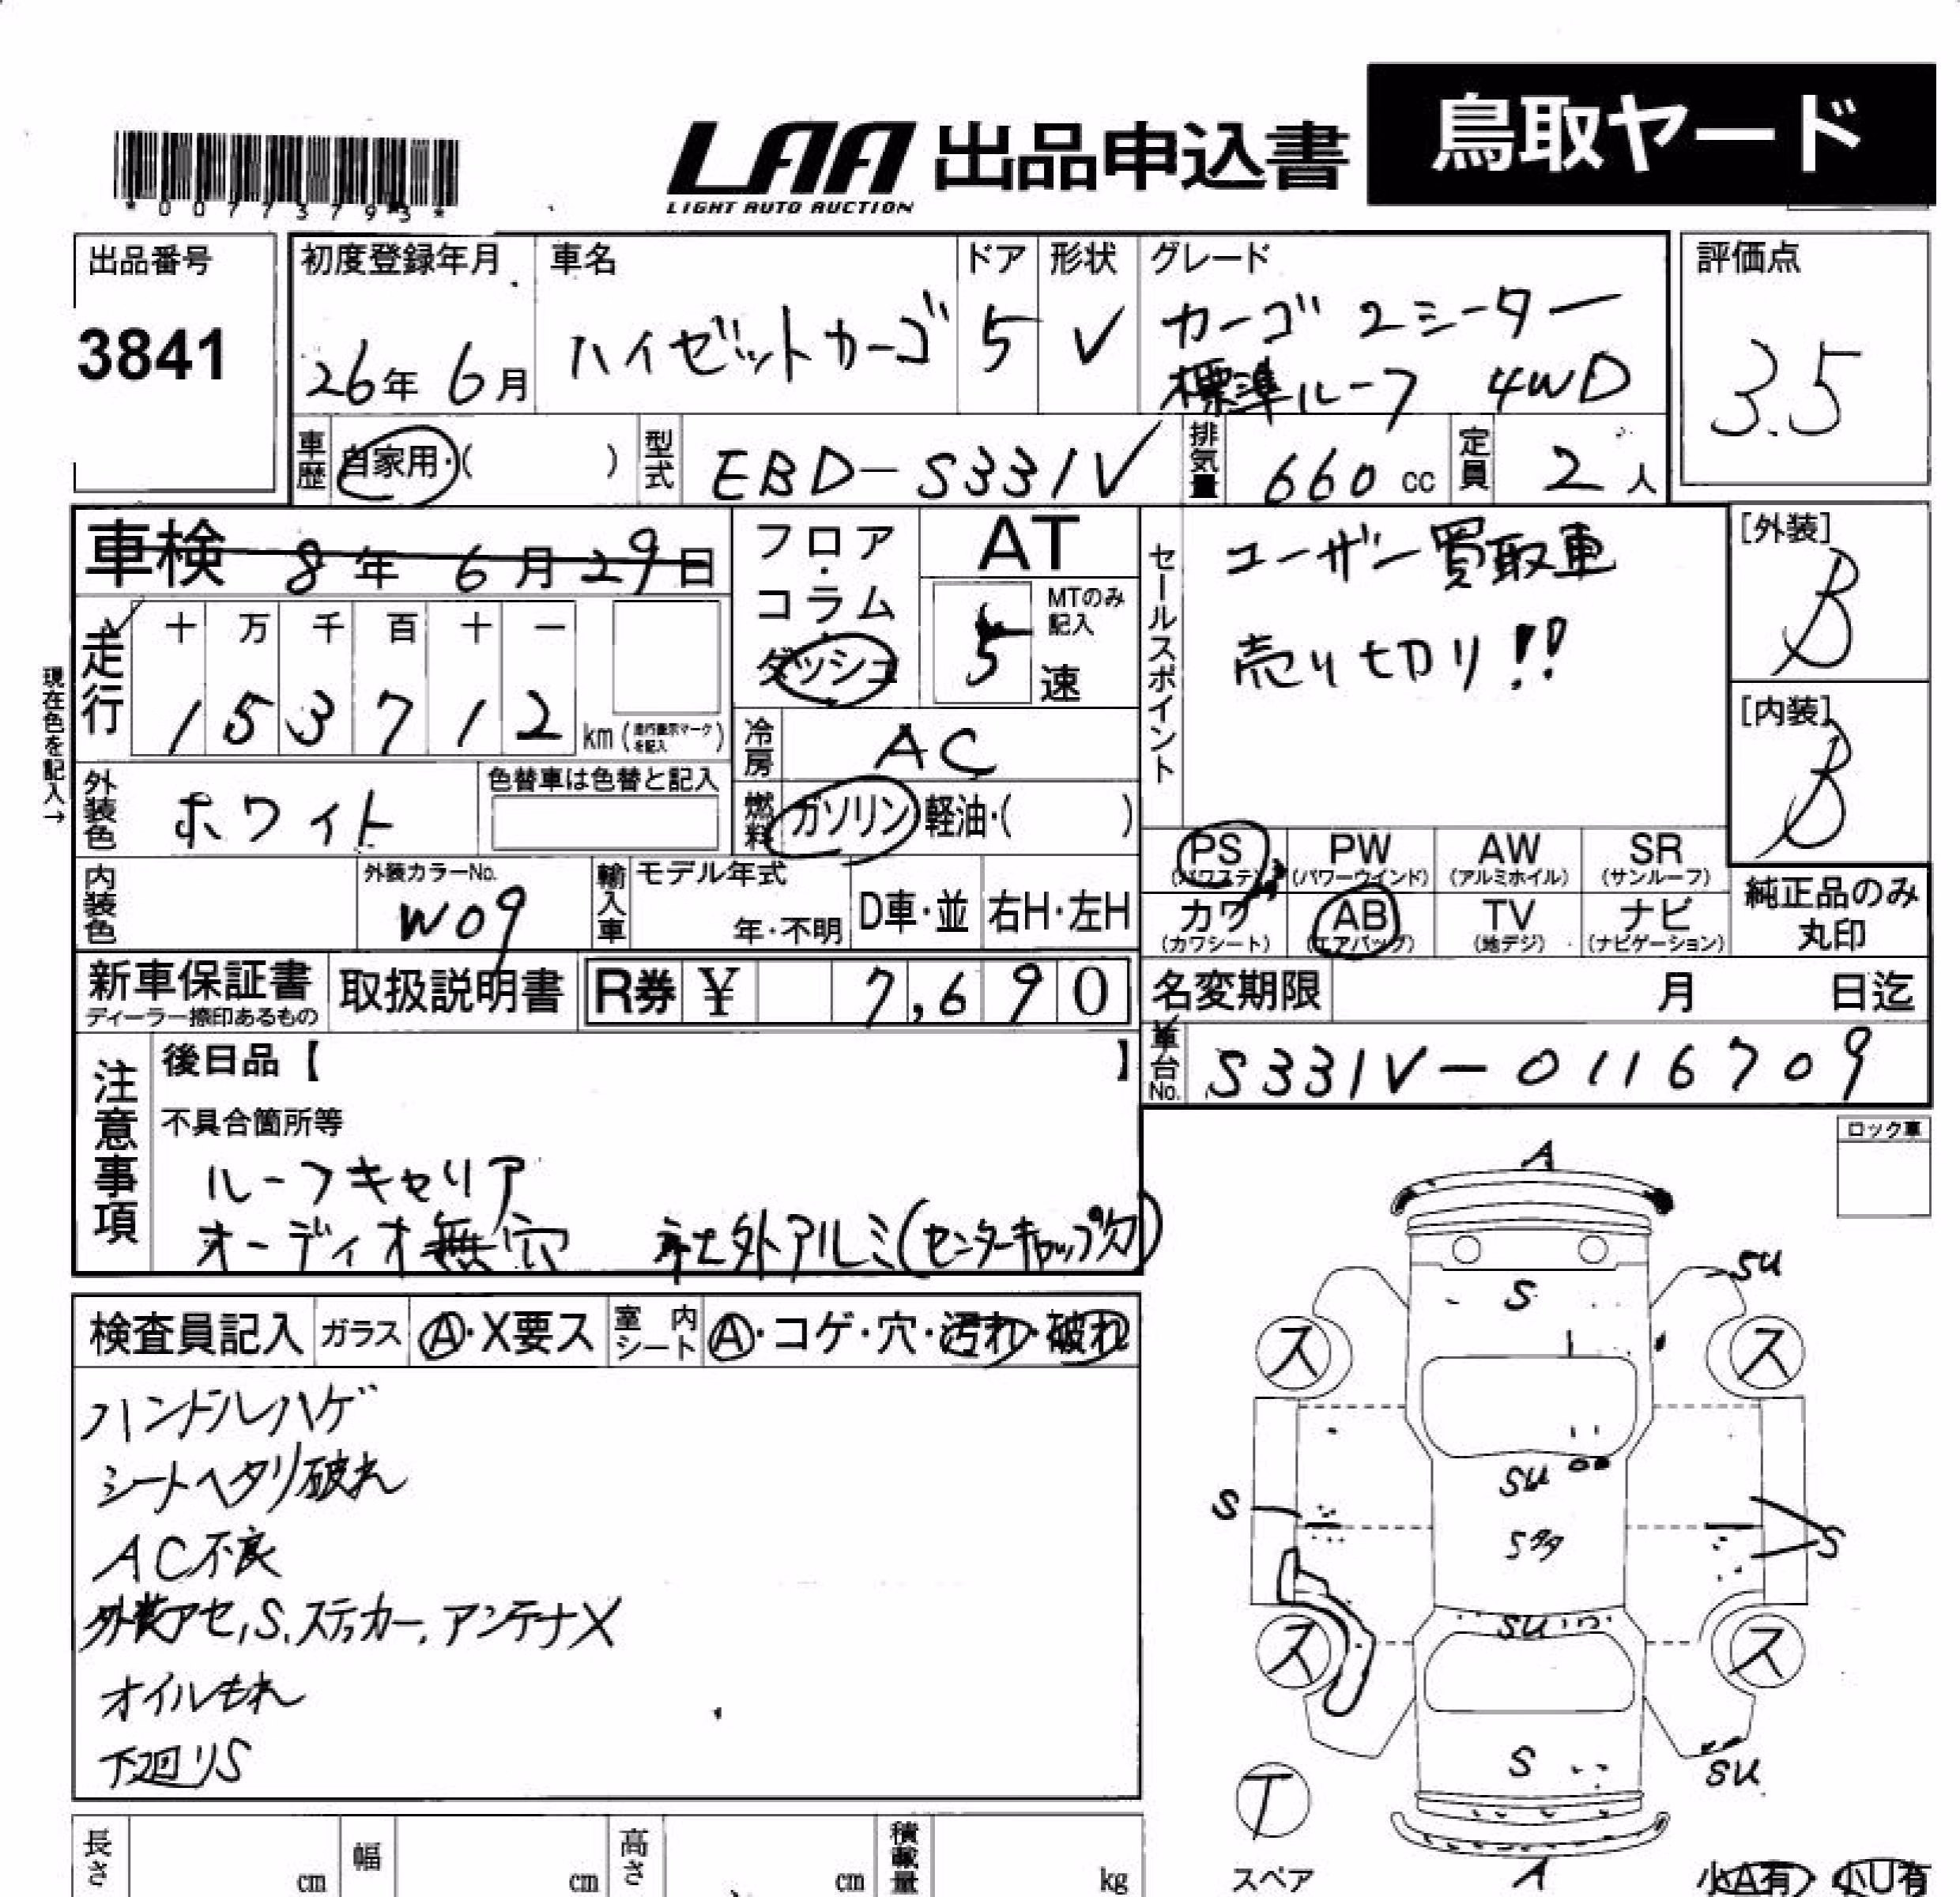 鳥取ヤード
LAA 出品申込書
LIGHT AUTO AUCTION
*00773793*
出品番号
3841
初度登録年月
26年 6月
車名
ハイゼットカーゴ
ドア
5
形状
V
グレード
カーゴ 2シーター
標準ルーフ 4WD
評価点
3.5
車歴
自家用・( )
型式
EBD-S331V
排気量
660 cc
定員
2 人
車検 8年 6月 29日
フロア・コラム・ダッシュ
AT
5
MTのみ記入
速
セールスポイント
ユーザー買取車
売り切り!!
[外装]
B
[内装]
B
現在色を記入→
走行
十 万 千 百 十 一
1 5 3 7 1 2
km (走行表示マークを記入)
冷房
AC
外装色
ホワイト
色替車は色替と記入
燃料
ガソリン 軽油・( )
PS (パワステ)
PW (パワーウインド)
AW (アルミホイル)
SR (サンルーフ)
カワ (カワシート)
AB (エアバッグ)
TV (地デジ)
ナビ (ナビゲーション)
純正品のみ丸印
内装色
外装カラーNo.
W09
輸入車
モデル年式
年・不明
D車・並
右H・左H
新車保証書
ディーラー捺印あるもの
取扱説明書
R券 ¥ 7,690
名変期限 月 日迄
車台No.
S331V-0116709
注意事項
後日品【 】
不具合箇所等
ルーフキャリア
オーディオ無穴 社外アルミ(センターキャップ欠)
ロック車
検査員記入
ガラス
A・X要ス
室内シート
A・コゲ・穴・汚れ・破れ
ハンドルハゲ
シートヘタリ破れ
AC不良
外装アセ,S,ステッカー,アンテナX
オイルもれ
下廻りS
A
SU
S
ス ス
SU
S
S
SU
ス ス
S
SU
T
スペア
A
小A有・小U有
長さ cm
幅 cm
高さ cm
積載量 kg